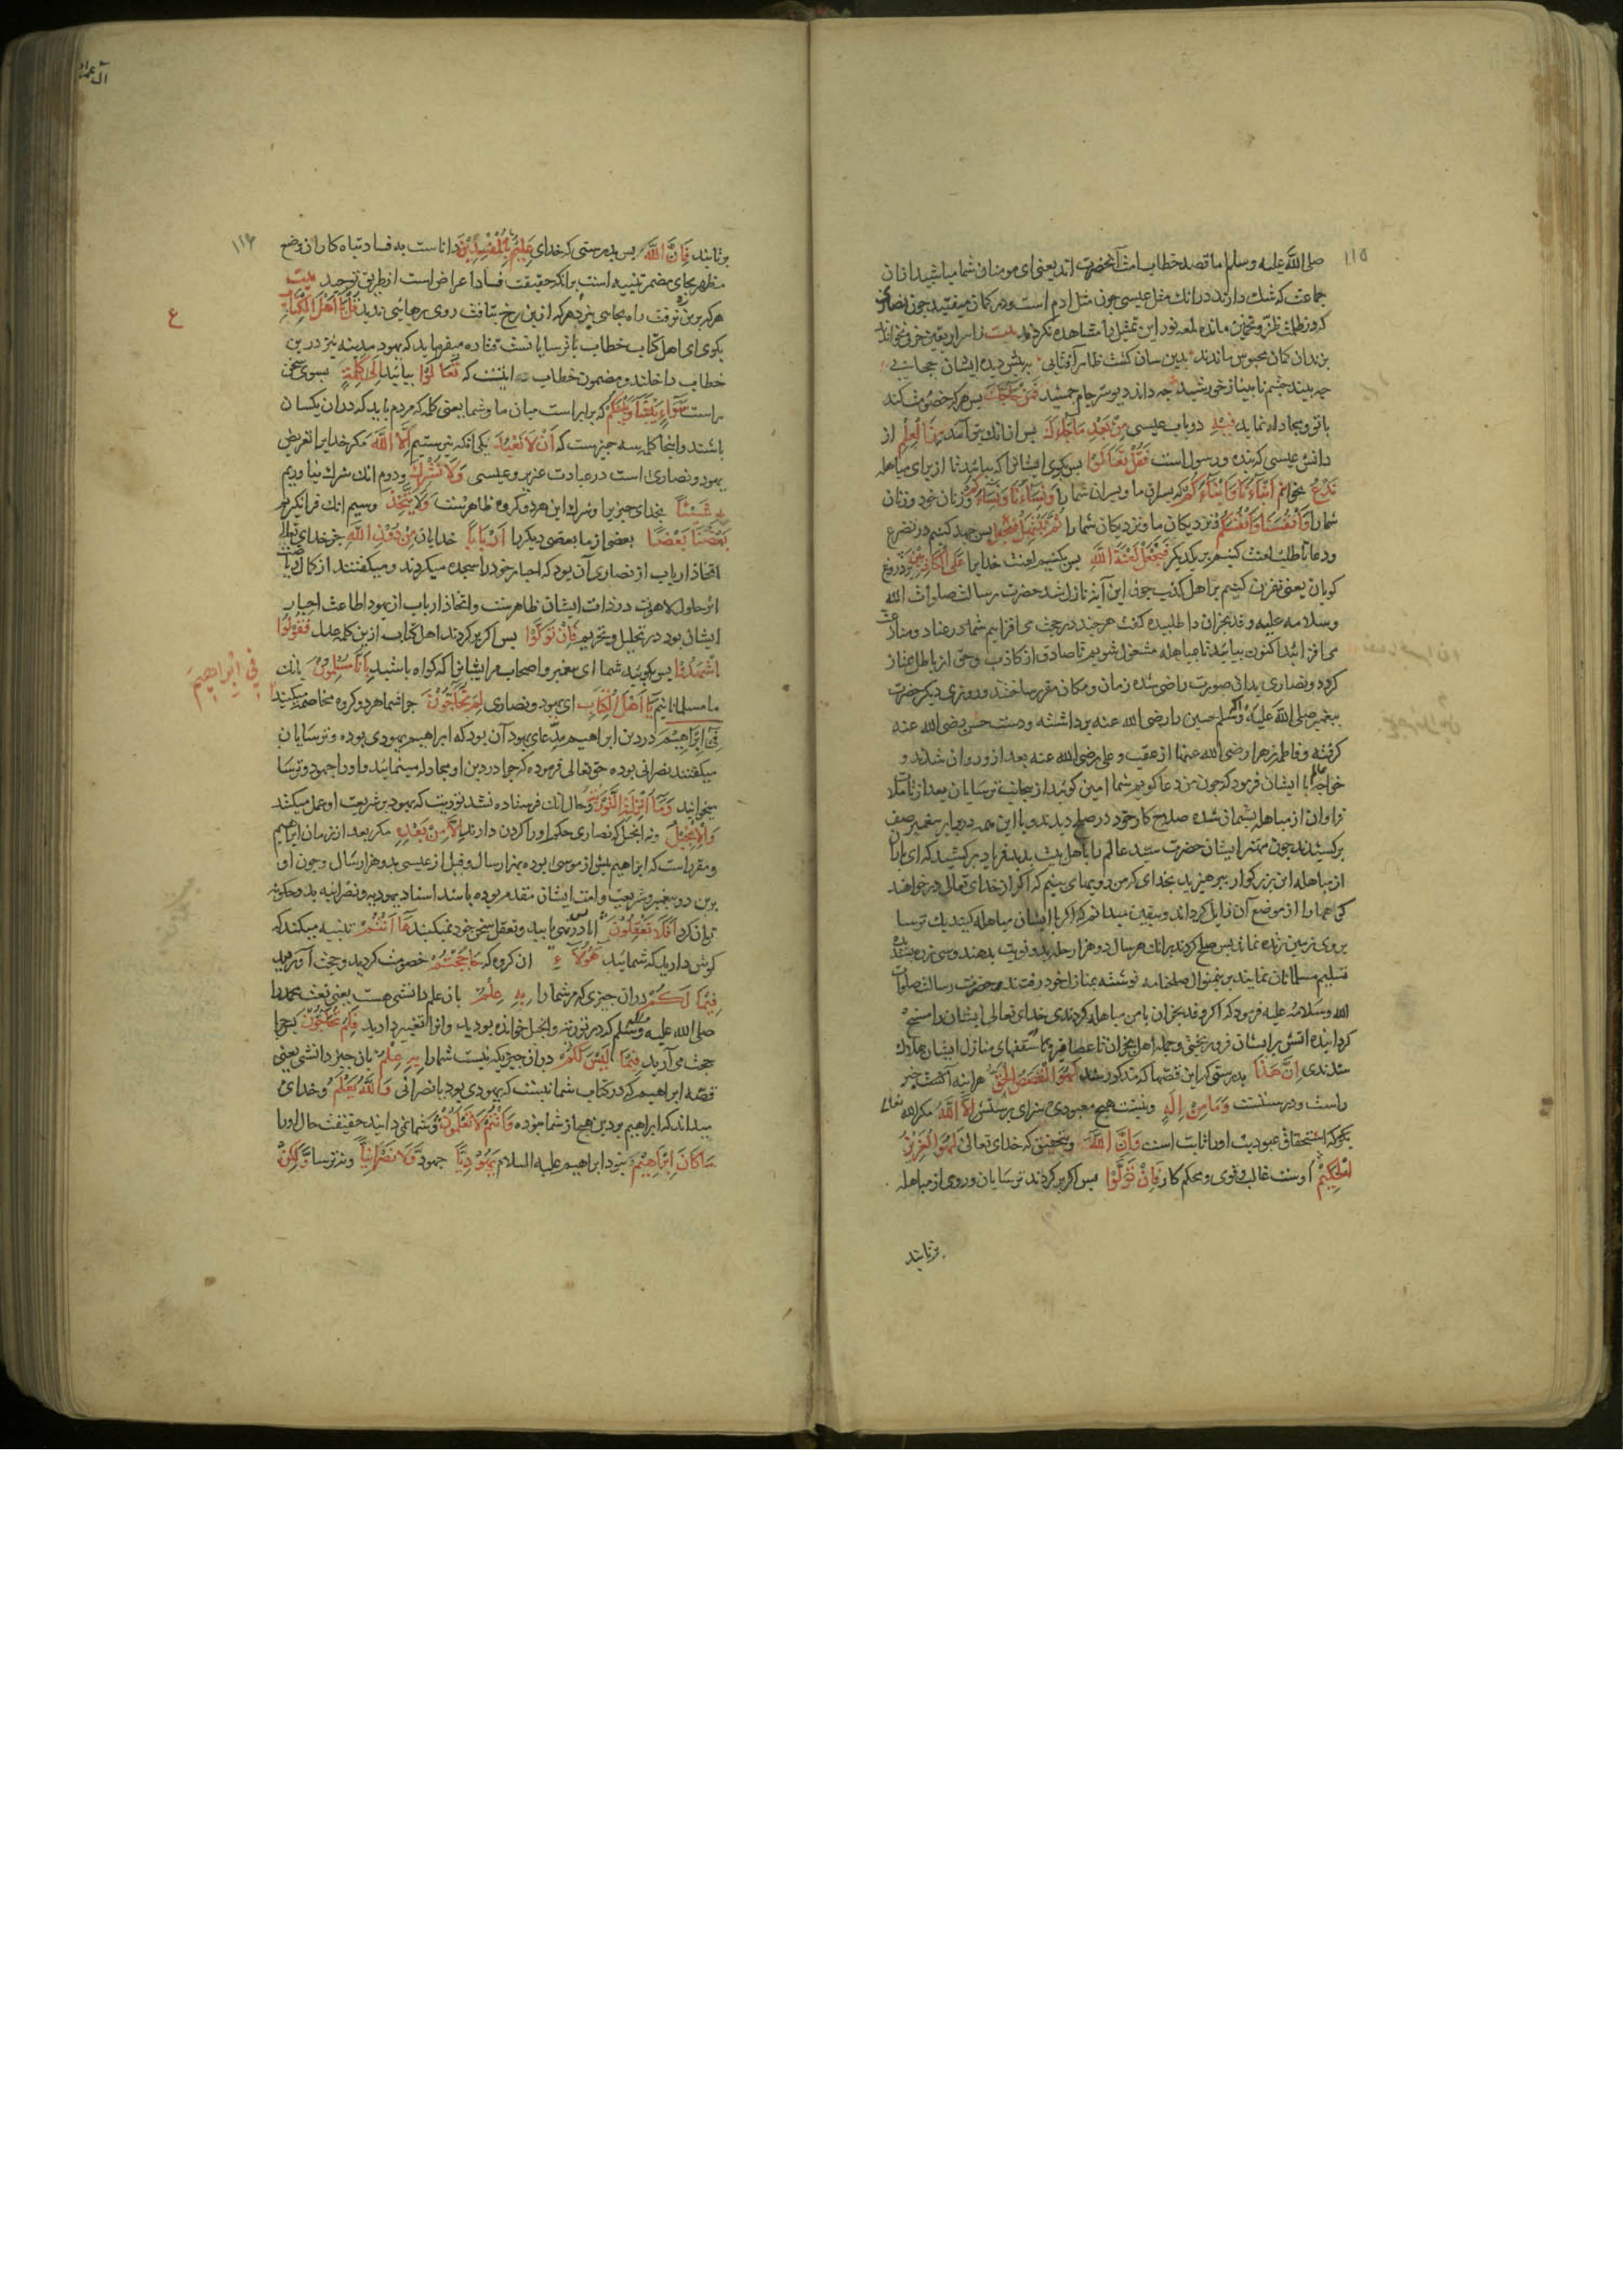 ۱۱۵
صلی الله علیه وسلم اما قصد خطاب امت آنحضرت اند یعنی ای مومنان شما مباشید ازان
جماعت که شک دارند در آنک مثل عیسی چون مثل ادم است و در کمان میفتید چون نصاری
که در ظلمت ظن و تخمین مانده لمعه نور این تمثیل را مشاهده نکردند بیت ز اسرار یقین حرفی نخوانند
بزندان کمان محبوس ماندند بدین سان کشت ظاهر آفتابی به پیش دیده ایشان حجابی
چه بیند چشم نابینا ز خورشید چه داند دیو سر جام جمشید فَمَنْ حَاجَّكَ پس هر که خصومت کند
با تو و مجادله نماید فِيهِ در باب عیسی مِنْ بَعْدِ مَا جَاءَكَ پس از انک بتو آمد مِنَ الْعِلْمِ از
دانش عیسی که بنده و رسول است فَقُلْ تَعَالَوْا پس بکوی ایشانرا که بیائید تا از برای مباهله
نَدْعُ بخوانیم أَبْنَاءَنَا وَأَبْنَاءَكُمْ که پسران ما و پسران شما را وَنِسَاءَنَا وَنِسَاءَكُمْ و زنان خود و زنان
شما را وَأَنْفُسَنَا وَأَنْفُسَكُمْ و نزدیکان ما و نزدیکان شما را ثُمَّ نَبْتَهِلْ پس جهد کنیم در تضرع
و دعا تا طلب لعنت کنیم بر یکدیکر فَنَجْعَلْ لَعْنَةَ اللَّهِ پس بکنیم لعنت خدا را عَلَى الْكَاذِبِينَ بر دروغ
کویان یعنی نفرین کنیم بر اهل کذب چون این آیة نازل شد حضرت رسالت صلوات الله
وسلامه علیه وفد نجران را طلبیده کفت هر چند در حجت می افزایم شما در عناد و منازعت
می افزائید اکنون بیائید تا بمباهله مشغول شویم تا صادق از کاذب و حق از باطل ممتاز
کردد و نصاری بدان صورت راضی شده زمان و مکان مقرر ساختند و روزی دیکر حضرت
پیغمبر صلی الله علیه وآله وسلم حسین را رضی الله عنه برداشته و دست حسن رضی الله عنه
کرفته و فاطمه زهرا رضی الله عنها از عقب و علی رضی الله عنه بعد از و روان شدند و
خواجه عالم با ایشان فرمود که چون من دعا کویم شما امین کوئید از جانب ترسایان بعد از تاملات
فراوان از مباهله پشمان شده صلاح کار خود در صلح دیدند و با این همه در برابر پیغمبر صف
بر کشیدند چون مهتر ایشان حضرت سید عالم را با اهل بیت بدید فریاد بر کشید که ای یاران
از مباهله این بزرکوار بپرهیزید بخدای که من رویهای می بینم که اکر از خدای تعالی در خواهند
کوهها را از موضع آن زایل کرداند و بیقین میدانم که اکر با ایشان مباهله کنید یک ترسا
بر روی زمین زنده نماند پس صلح کردند بر انک هر سال دو هزار حله بدو نوبت بدهند و سی زره
تسلیم مسلمانان نمایند برین منوال صلحنامه نوشته بمنازل خود رفتند حضرت رسالت صلوات
الله وسلامه علیه فرمود که اکر وفد نجران با من مباهله کردندی خدای تعالی ایشان را مسخ
کردانیده آتش بر ایشان فرو ریختی و جمله اهل نجران تا عصافیر بر سقفهای منازل ایشان هلاک
شدندی إِنَّ هَذَا بدرستی که این قصها که مذکور شد لَهُوَ الْقَصَصُ الْحَقُّ هر اینه آنست خبر
راست و درستست وَمَا مِنْ إِلَهٍ و نیست هیچ معبودی سزای پرستش إِلَّا اللَّهُ مکر الله تعالی
یکی که استحقاق عبودیت او را ثابت است وَإِنَّ اللَّهَ و بتحقیق که خدای تعالی لَهُوَ الْعَزِيزُ
الْحَكِيمُ اوست غالب و قوی و محکم کار فَإِنْ تَوَلَّوْا پس اکر بر کردند ترسایان و روی از مباهله
برتابند
آل عمران
۱۱۶
برتابند فَإِنَّ اللَّهَ پس بدرستی که خدای عَلِيمٌ بِالْمُفْسِدِينَ داناست به فساد تباه کاران وضع
مظهر بجای مضمر تنبیه است بر آنکه حقیقت فساد اعراض است از طریق توحید بیت
هر که برین نرفت راه بجائی نبرد هر که ازین رخ بتافت روی رهائی ندید قُلْ يَا أَهْلَ الْكِتَابِ
ع
بکوی ای اهل کتاب خطاب با ترسایانست میفرماید که یهود مدینه نیز درین
خطاب داخلند و مضمون خطاب اینست که تَعَالَوْا بیائید إِلَى كَلِمَةٍ بسوی سخن
راست سَوَاءٍ بَيْنَنَا وَبَيْنَكُمْ که برابر است میان ما و شما یعنی کلمه که مردم باید که دران یکسان
باشند و اینجا کلمه سه چیزست که أَنْ لَا نَعْبُدَ یکی انکه نپرستیم إِلَّا اللَّهَ مکر خدایرا تعریض
یهود و نصاری است در عبادت عزیر و عیسی وَلَا نُشْرِكَ و دوم انک شرک نیاوریم
بِهِ شَيْئًا بخدای چیزیرا و شرک این هر دو کروه ظاهرست وَلَا يَتَّخِذَ وسیم انک فرا نکیرد
بَعْضُنَا بَعْضًا بعضی از ما بعضی دیکر را أَرْبَابًا خدایان مِنْ دُونِ اللَّهِ جز خدای تعالی
اتخاذ ارباب از نصاری آن بود که احبار خود را سجده میکردند و میکفتند از کمال ریاضت
اثر حلول لاهوت در ذات ایشان ظاهرست و اتخاذ ارباب از یهود اطاعت احبار
ایشان بود در تحلیل و تحریم فَإِنْ تَوَلَّوْا پس اکر بر کردند اهل کتاب ازین کلمه عدل فَقُولُوا
اشْهَدُوا پس بکوئید شما ای پیغمبر و اصحاب مر ایشانرا که کواه باشید بِأَنَّا مُسْلِمُونَ بانک
ما مسلمانانیم يَا أَهْلَ الْكِتَابِ ای یهود و نصاری لِمَ تُحَاجُّونَ چرا شما هر دو کروه مخاصمه میکنید
فِي إِبْرَاهِيمَ
فِي إِبْرَاهِيمَ در دین ابراهیم مدعای یهود آن بود که ابراهیم یهودی بوده و ترسایان
میکفتند نصرانی بوده حق تعالی فرموده که چرا در دین او مجادله مینمائید و او را جهود و ترسا
میخوانید وَمَا أُنْزِلَتِ التَّوْرَاةُ و حال آنک فرستاده نشد توریت که یهود بر شریعت او عمل میکنند
وَالْإِنْجِيلُ و نه انجیل که نصاری حکم او را کردن دارند إِلَّا مِنْ بَعْدِهِ مکر بعد از زمان ابراهیم
و مقررست که ابراهیم پیش از موسی بوده بهزار سال و قبل از عیسی بدو هزار سال و چون او
برین دو پیغمبر و شریعت و امت ایشان مقدم بوده باشد اسناد یهودیه و نصرانیه بدو چکونه
توان کرد أَفَلَا تَعْقِلُونَ ایا در نمی یابید و تعقل سخن خود نمیکنید هَا أَنْتُمْ تنبیه میکند که
کوش دارید که شمائید هَؤُلَاءِ ان کروه که حَاجَجْتُمْ خصومت کردید و حجت آوردید
فِيمَا لَكُمْ دران چیزی که مر شما را بِهِ عِلْمٌ بان علم و دانشی هست یعنی نعت محمد را
صلی الله علیه وآله وسلم که در توریة و انجیل خوانده بودید و انرا تغییر دادید فَلِمَ تُحَاجُّونَ پس چرا
حجت می آرید فِيمَا لَيْسَ لَكُمْ در ان چیزی که نیست شما را بِهِ عِلْمٌ بان چیز دانشی یعنی
قصه ابراهیم که در کتاب شما نیست که یهودی بود یا نصرانی وَاللَّهُ يَعْلَمُ و خدای
میداند که ابراهیم بر دین هیچ از شما نبوده وَأَنْتُمْ لَا تَعْلَمُونَ و شما نمی دانید حقیقت حال او را
مَا كَانَ إِبْرَاهِيمُ نبود ابراهیم علیه السلام يَهُودِيًّا جهود وَلَا نَصْرَانِيًّا و نه ترسا وَلَكِنْ